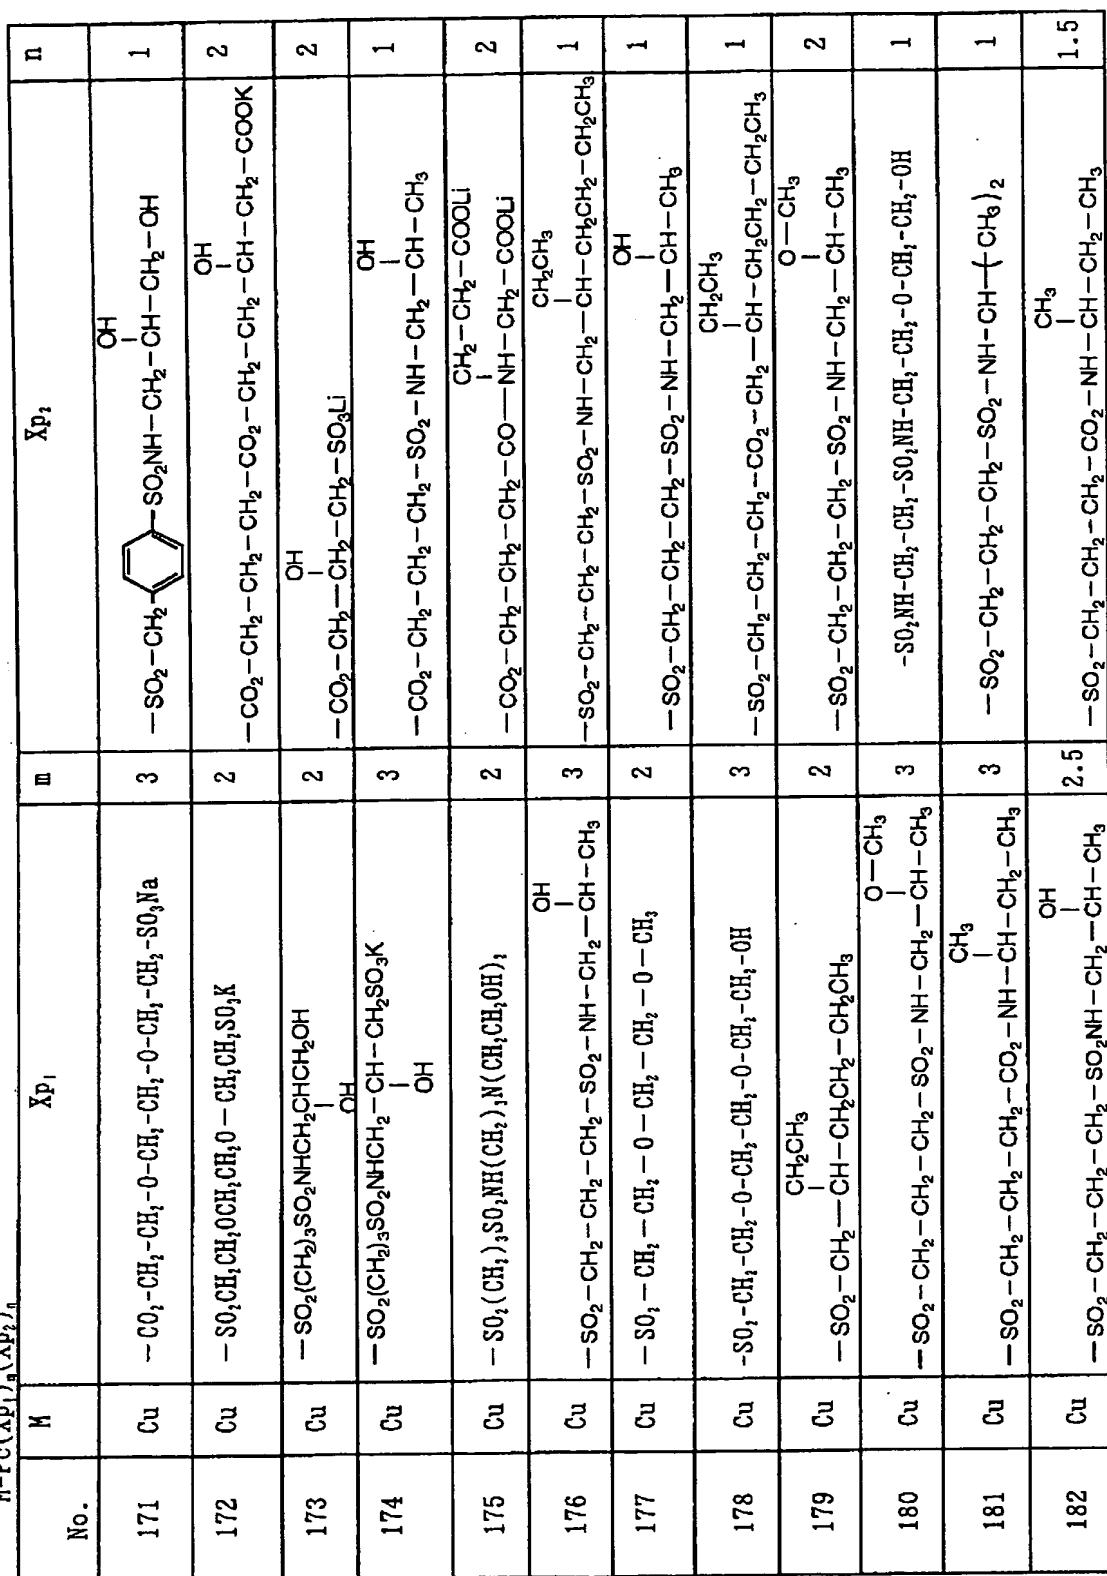 M-Pc(Xp₁)ₘ(Xp₂)ₙ
No. M Xp₁ m Xp₂ n
171 Cu —CO₂-CH₂-CH₂-O-CH₂-CH₂-O-CH₂-CH₂-SO₃Na 3 —SO₂—CH₂— —SO₂NH—CH₂—CH(OH)—CH₂—OH 1
172 Cu —SO₂CH₂CH₂OCH₂CH₂O—CH₂CH₂SO₃K 2 —CO₂—CH₂—CH₂—CH₂—CO₂—CH₂—CH₂—CH(OH)—CH₂—COOK 2
173 Cu —SO₂(CH₂)₃SO₂NHCH₂CH(OH)CH₂OH 2 —CO₂—CH₂—CH₂(OH)—CH₂—SO₃Li 2
174 Cu —SO₂(CH₂)₃SO₂NHCH₂—CH(OH)—CH₂SO₃K 3 —CO₂—CH₂—CH₂—CH₂—SO₂—NH—CH₂—CH(OH)—CH₃ 1
175 Cu —SO₂(CH₂)₃SO₂NH(CH₂)₃N(CH₂CH₂OH)₂ 2 —CO₂—CH₂—CH₂—CH₂—CO—NH(CH₂—CH₂—COOLi)—CH₂—COOLi 2
176 Cu —SO₂—CH₂—CH₂—CH₂—SO₂—NH—CH₂—CH(OH)—CH₃ 3 —SO₂—CH₂—CH₂—CH₂—SO₂—NH—CH₂—CH(CH₂CH₃)—CH₂CH₂—CH₂CH₃ 1
177 Cu —SO₂—CH₂—CH₂—O—CH₂—CH₂—O—CH₃ 2 —SO₂—CH₂—CH₂—CH₂—SO₂—NH—CH₂—CH(OH)—CH₃ 1
178 Cu -SO₂-CH₂-CH₂-O-CH₂-CH₂-O-CH₂-CH₂-OH 3 —SO₂—CH₂—CH₂—CH₂—CO₂—CH₂—CH(CH₂CH₃)—CH₂CH₂—CH₂CH₃ 1
179 Cu —SO₂—CH₂—CH(CH₂CH₃)—CH₂CH₂—CH₂CH₃ 2 —SO₂—CH₂—CH₂—CH₂—SO₂—NH—CH₂—CH(O—CH₃)—CH₃ 2
180 Cu —SO₂—CH₂—CH₂—CH₂—SO₂—NH—CH₂—CH(O—CH₃)—CH₃ 3 -SO₂NH-CH₂-CH₂-SO₂NH-CH₂-CH₂-O-CH₂-CH₂-OH 1
181 Cu —SO₂—CH₂—CH₂—CH₂—CO₂—NH—CH(CH₃)—CH₂—CH₃ 3 —SO₂—CH₂—CH₂—CH₂—SO₂—NH—CH—(CH₃)₂ 1
182 Cu —SO₂—CH₂—CH₂—CH₂—SO₂NH—CH₂—CH(OH)—CH₃ 2.5 —SO₂—CH₂—CH₂—CH₂—CO₂—NH—CH(CH₃)—CH₂—CH₃ 1.5